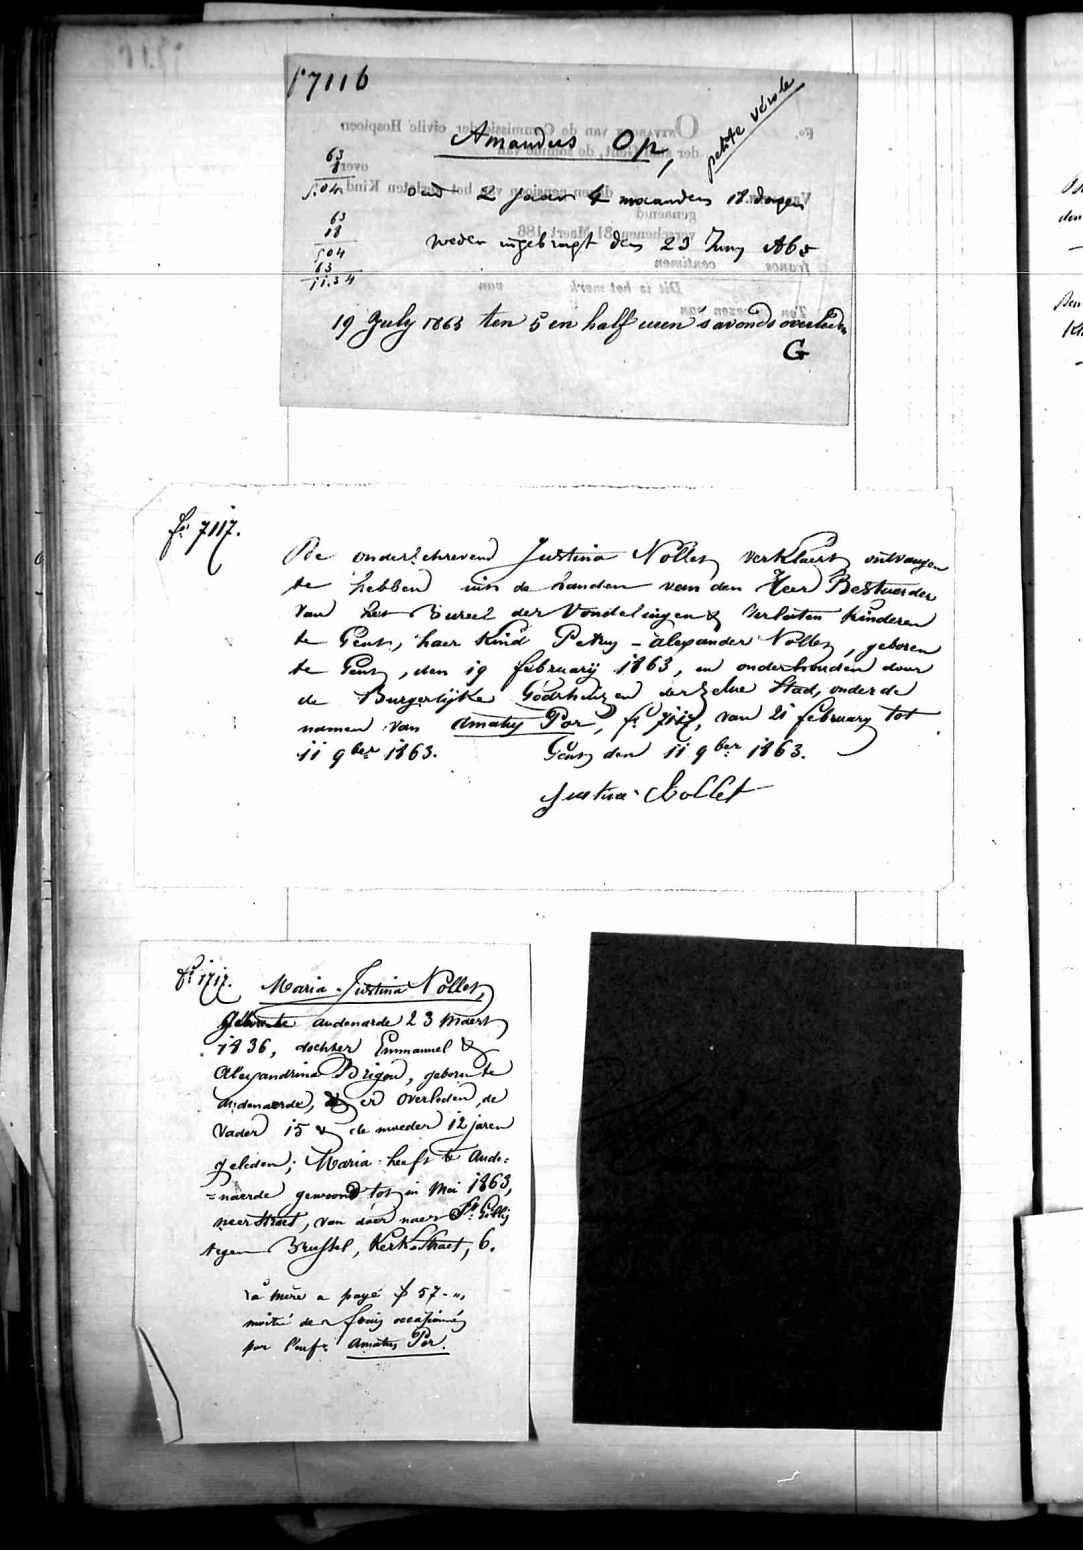 f° 7116
petite vérole
Amandus Op,
63
8
5.04
oud 2 jaar 4 maanden 18 dagen
63
18
504
63
11.34
weder ingebragt den 23 Juny 1865
19 July 1865 ten 5 en half uren s'avonds overleden
G
f° 7117.
De onderschrevene Justina Nollet verklaert ontvangen
te hebben uit de handen van den Heer Bestuerder
van het Bureel der Vondelingen & Verlaten kinderen
te Gent, haer kind Petrus-Alexander Nollet, geboren
te Gent, den 19 february 1863, en onderhouden door
de Burgerlijke Godshuizen derzelve Stad, onder de
namen van Amatus Por, f° 7117, van 21 february tot
11 9ber 1863. Gent den 11 9ber 1863.
Justina Nollet
f° 1717. Maria-Justina Nollet,
geboren te audenarde 23 Maert
1836, dochter Emmanuel &
Alexandrina Brigou, geboren te
audenaerde, & er overleden, de
vader 15 & de moeder 12 jaren
geleden; Maria heeft te Aude=
=naerde gewoond tot in Mei 1863,
neerstraet, van daer naer St Gillis
tegen Brussel, Kerkstraet, 6.
la mère a payé f 57-"
moitié des frais occasionnés
par l'enft Amatus Por.